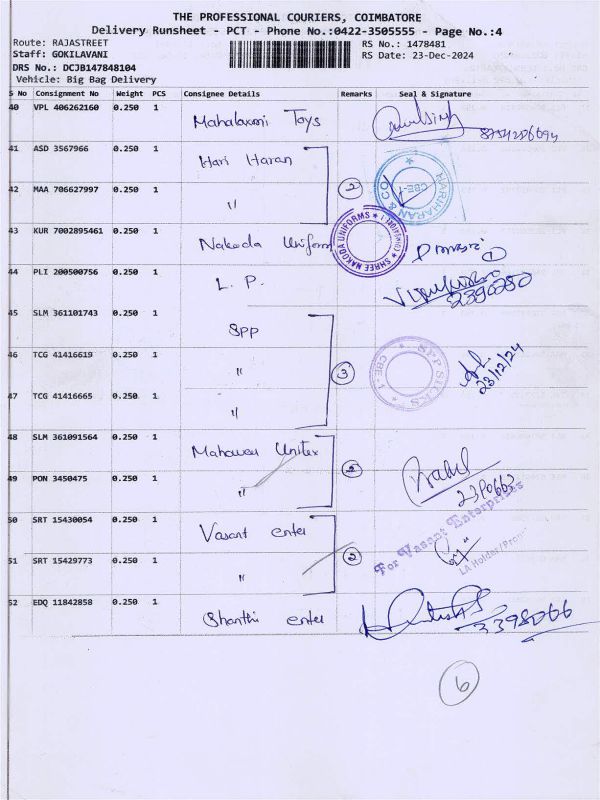 THE PROFESSIONAL COURIERS, COIMBATORE
Delivery Runsheet - PCT - Phone No.:0422-3505555 - Page No.:4
Route: RAJASTREET RS No.: 1478481
Staff: GOKILAVANI RS Date: 23-Dec-2024
DRS No.: DCJB147848104
Vehicle: Big Bag Delivery
S No Consignment No Weight PCS Consignee Details Remarks Seal & Signature
40 VPL 406262160 0.250 1 Mahalaxmi Toys
41 ASD 3567966 0.250 1 Hari Haran
HARIHARAN & CO CBE-1
42 MAA 706627997 0.250 1 " 2
43 KUR 7002895461 0.250 1 Nakoda Uniform
SHREE NAKODA UNIFORMS 1
44 PLI 200500756 0.250 1 L. P.
2390250
45 SLM 361101743 0.250 1 SPP
46 TCG 41416619 0.250 1 " 3
SPP SILKS CBE-1
23/12/24
47 TCG 41416665 0.250 1 "
48 SLM 361091564 0.250 1 Mahaveer Unitex 2
49 PON 3450475 0.250 1 "
2390663
50 SRT 15430054 0.250 1 Vasant enter
For Vasant Enterprises
51 SRT 15429773 0.250 1 " 2
LA Holder/Prop
52 EDQ 11842858 0.250 1 Shanthi enter
3398066
6